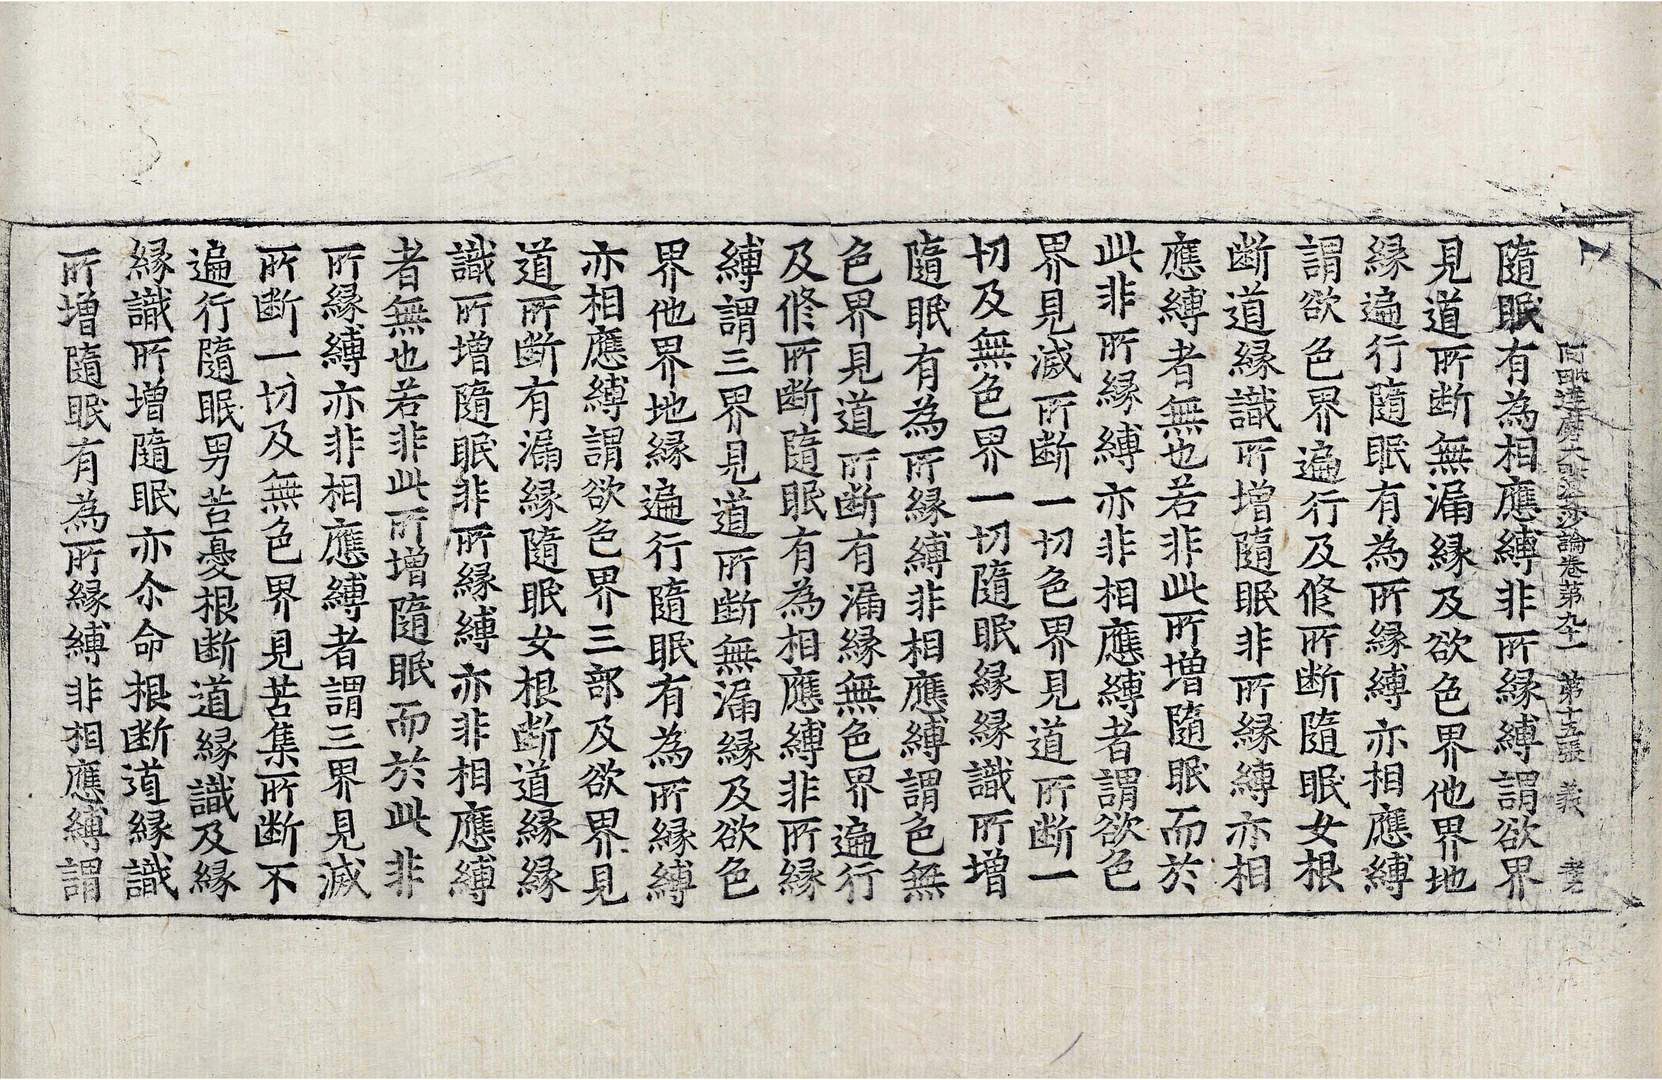 阿毗達磨大毗婆沙論卷第九十一 第十五張 義
隨眠有為相應縛非所縁縛謂欲界
見道所断無漏縁及欲色界他界地
縁遍行隨眠有為所縁縛亦相應縛
謂欲色界遍行及修所断隨眠女根
断道縁識所增隨眠非所縁縛亦相
應縛者無也若非此所增隨眠而於
此非所縁縛亦非相應縛者謂欲色
界見滅所断一切色界見道所断一
切及無色界一切隨眠縁縁識所增
隨眠有為所縁縛非相應縛謂色無
色界見道所断有漏縁無色界遍行
及修所断隨眠有為相應縛非所縁
縛謂三界見道所断無漏縁及欲色
界他界地縁遍行隨眠有為所縁縛
亦相應縛謂欲色界三部及欲界見
道所断有漏縁隨眠女根断道縁縁
識所增隨眠非所縁縛亦非相應縛
者無也若非此所增隨眠而於此非
所縁縛亦非相應縛者謂三界見滅
所断一切及無色界見苦集所断不
遍行隨眠男苦憂根断道縁識及縁
縁識所增隨眠亦尒命根断道縁識
所增隨眠有為所縁縛非相應縛謂